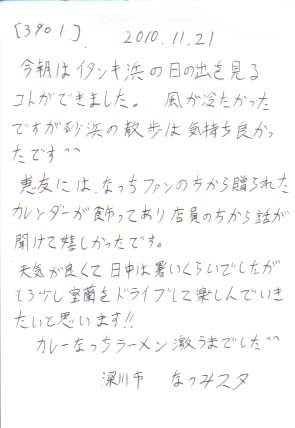 [3901]
2010.11.21
今朝はイタンキ浜の日の出を見る
コトができました。 風が冷たかった
ですが砂浜の散歩は気持ち良かっ
たです^^
恵友には、なっちファンの方から贈られた
カレンダーが飾ってあり店員の方から話が
聞けて嬉しかったです。
天気が良くて日中は暑いくらいでしたが
もう少し室蘭をドライブして楽しんでいき
たいと思います!!
カレーなっちラーメン激うまでした^^
深川市 なつみスタ